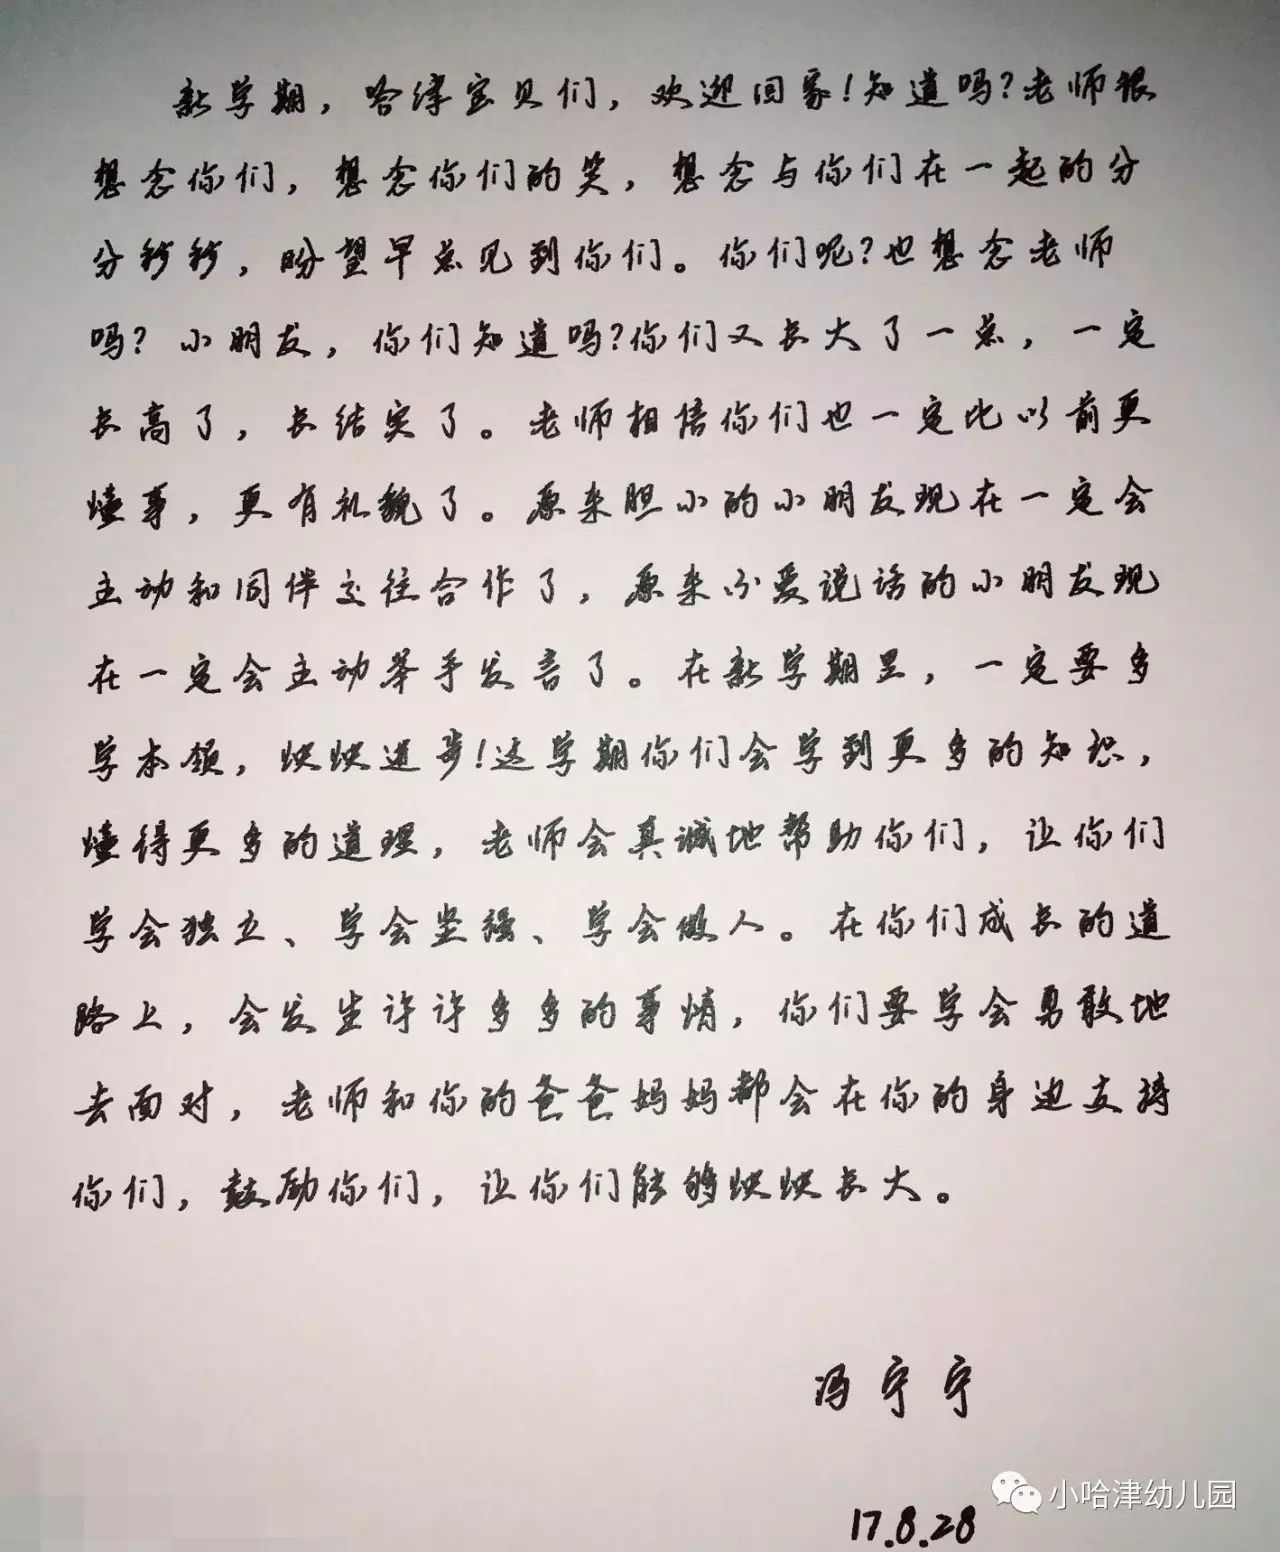 新学期，哈津宝贝们，欢迎回家！知道吗？老师很
想念你们，想念你们的笑，想念与你们在一起的分
分秒秒，盼望早点见到你们。你们呢？也想念老师
吗？小朋友，你们知道吗？你们又长大了一点，一定
长高了，长结实了。老师相信你们也一定比以前更
懂事，更有礼貌了。原来胆小的小朋友现在一定会
主动和同伴交往合作了，原来不爱说话的小朋友现
在一定会主动举手发言了。在新学期里，一定要多
学本领，快快进步！这学期你们会学到更多的知识，
懂得更多的道理，老师会真诚地帮助你们，让你们
学会独立、学会坚强、学会做人。在你们成长的道
路上，会发生许许多多的事情，你们要学会勇敢地
去面对，老师和你的爸爸妈妈都会在你的身边支持
你们，鼓励你们，让你们能够快快长大。
冯宁宁
小哈津幼儿园
17.8.28